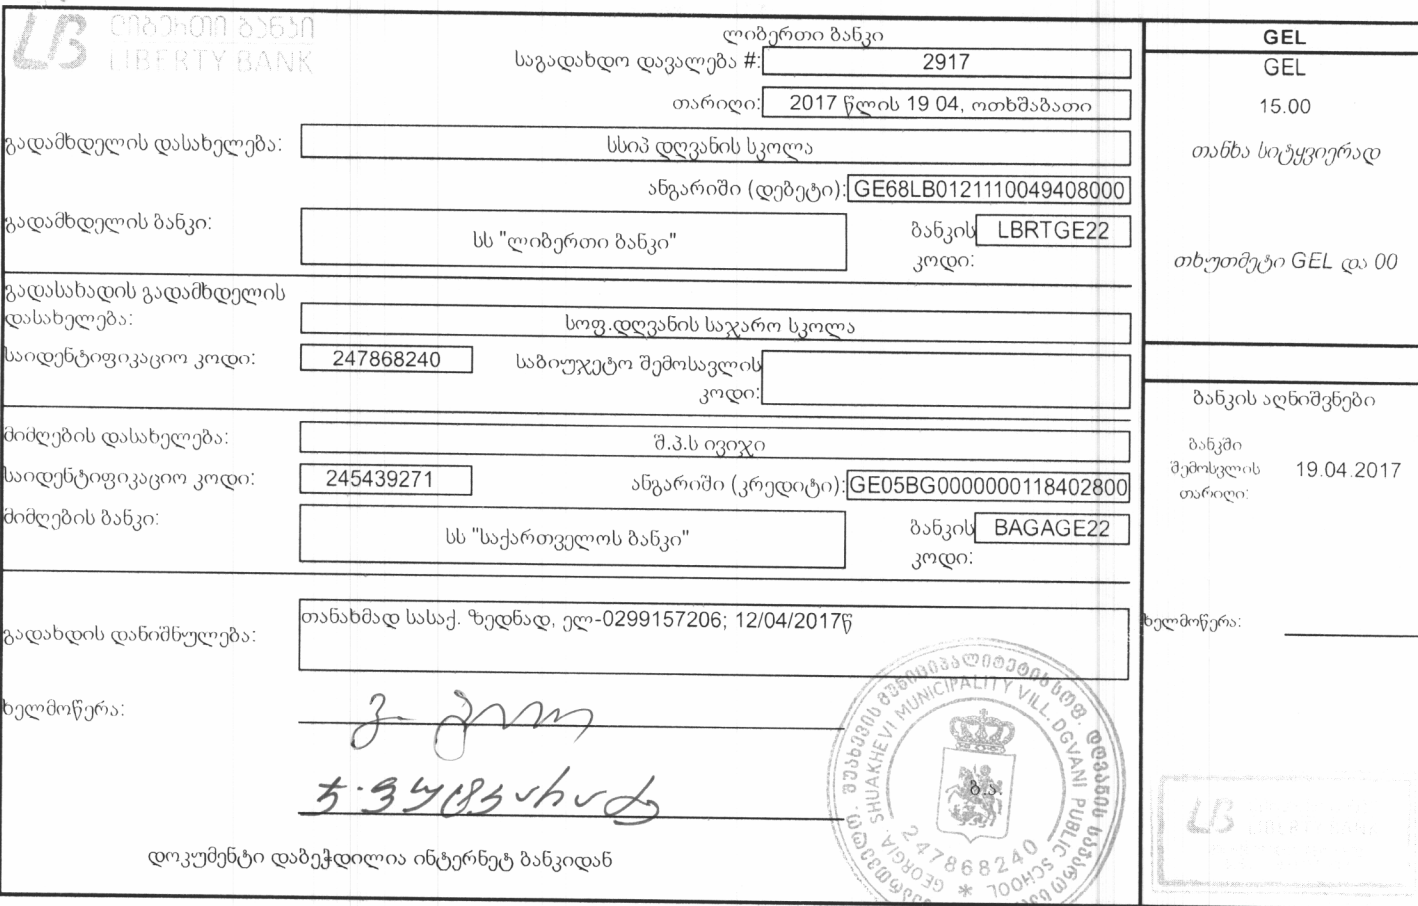 ლიბერთი ბანკი
LIBERTY BANK
ლიბერთი ბანკი
საგადახდო დავალება #: 2917
თარიღი: 2017 წლის 19 04, ოთხშაბათი
გადამხდელის დასახელება: სსიპ დღვანის სკოლა
ანგარიში (დებეტი): GE68LB0121110049408000
გადამხდელის ბანკი: სს "ლიბერთი ბანკი" ბანკის კოდი: LBRTGE22
გადასახადის გადამხდელის
დასახელება: სოფ.დღვანის საჯარო სკოლა
საიდენტიფიკაციო კოდი: 247868240 საბიუჯეტო შემოსავლის
კოდი:
მიმღების დასახელება: შ.პ.ს ივიჯი
საიდენტიფიკაციო კოდი: 245439271 ანგარიში (კრედიტი): GE05BG0000000118402800
მიმღების ბანკი: სს "საქართველოს ბანკი" ბანკის კოდი: BAGAGE22
გადახდის დანიშნულება: თანახმად სასაქ. ზედნად, ელ-0299157206; 12/04/2017წ
ხელმოწერა:
დოკუმენტი დაბეჭდილია ინტერნეტ ბანკიდან
GEL
GEL
15.00
თანხა სიტყვიერად
თხუთმეტი GEL და 00
ბანკის აღნიშვნები
ბანკში
შემოსვლის 19.04.2017
თარიღი:
ხელმოწერა:
ბ.ა.
GEORGIA, SHUAKHEVI MUNICIPALITY VILL. DGVANI PUBLIC SCHOOL
247868240
LB
LIBERTY BANK